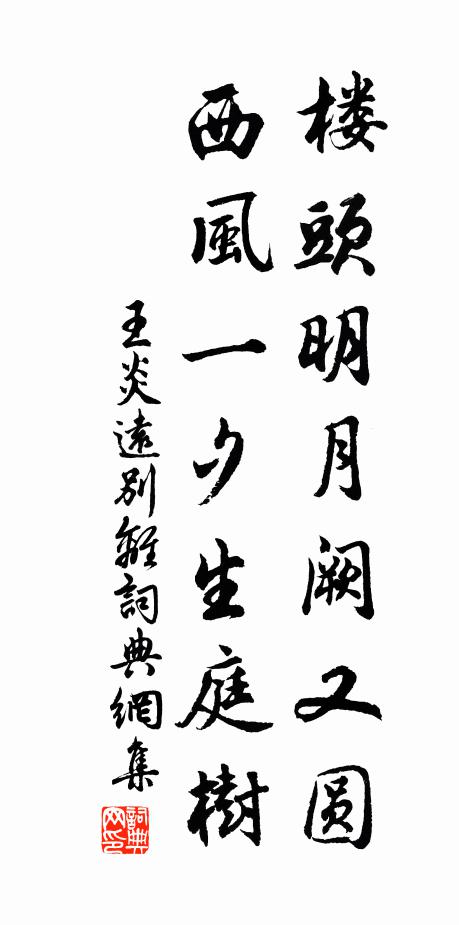 楼頭明月阙又圆
西風一夕生庭樹
王炎遠別離詞典網集
詞典网印